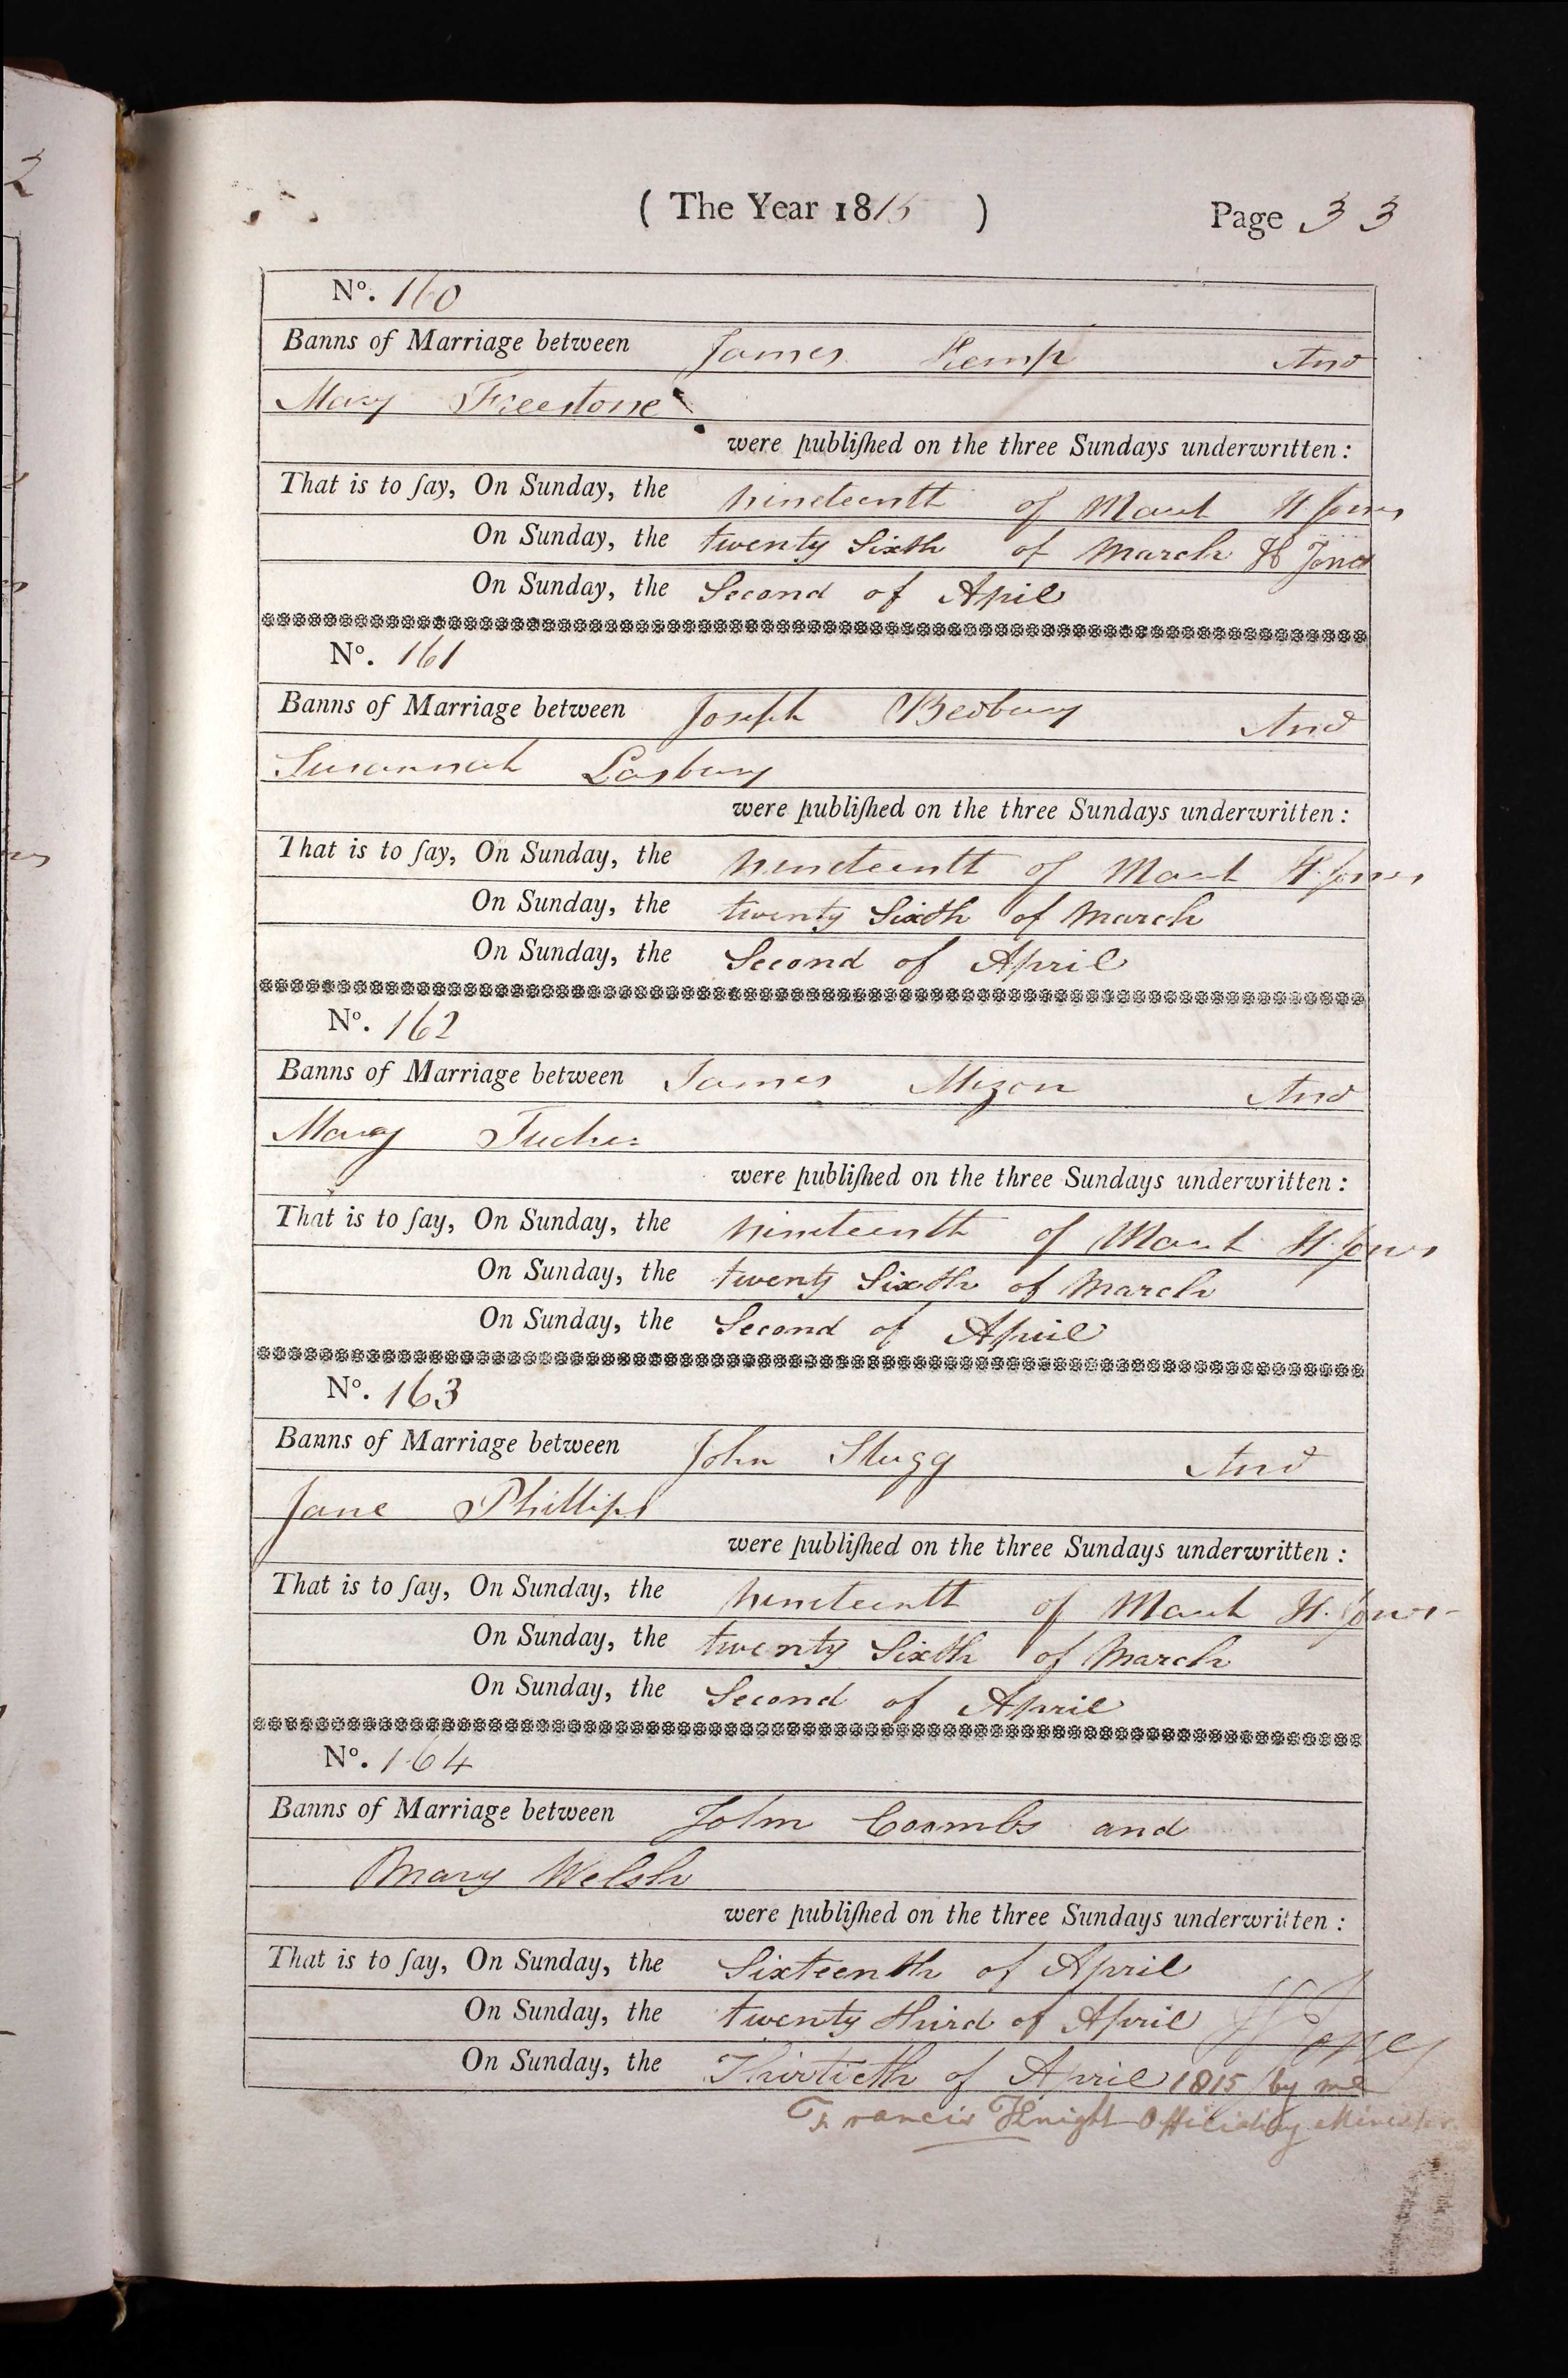 2
( The Year 1815 ) Page 33
No. 160
Banns of Marriage between James Kemp And
Mary Freestone
were publiſhed on the three Sundays underwritten :
That is to ſay, On Sunday, the nineteenth of March H Jones
On Sunday, the twenty Sixth of March H Jones
On Sunday, the Second of April
No. 161
Banns of Marriage between Joseph Bedbury And
Susannah Lasbury
were publiſhed on the three Sundays underwritten :
That is to ſay, On Sunday, the nineteenth of March H. Jones
On Sunday, the twenty Sixth of March
On Sunday, the Second of April
No. 162
Banns of Marriage between James Mizon And
Mary Tucker
were publiſhed on the three Sundays underwritten :
That is to ſay, On Sunday, the nineteenth of March H. Jones
On Sunday, the twenty Sixth of March
On Sunday, the Second of April
No. 163
Banns of Marriage between John Slugg And
Jane Phillips
were publiſhed on the three Sundays underwritten :
That is to ſay, On Sunday, the nineteenth of March H. Jones
On Sunday, the twenty Sixth of March
On Sunday, the Second of April
No. 164
Banns of Marriage between John Coombs and
Mary Welsh
were publiſhed on the three Sundays underwritten :
That is to ſay, On Sunday, the Sixteenth of April
On Sunday, the twenty third of April
On Sunday, the Thirtieth of April 1815 by me
Francis Knight Officiating Minister